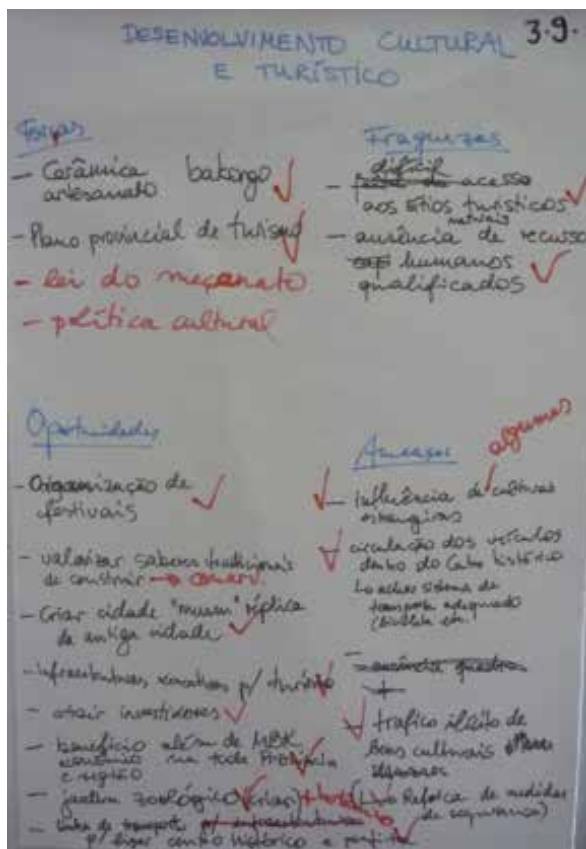 DESENVOLVIMENTO CULTURAL
E TURÍSTICO
3.9.
Forças
- Cerâmica bakongo
artesanato
- Plano provincial de turismo
- lei do meçanato
- política cultural
Fraquezas
difícil
- acesso
aos sítios turísticos
naturais
- ausência de recurso
humanos
qualificados
Oportunidades
- Organização de
festivais
- valorizar saberes tradicionais
de construir →
- Criar cidade "museu" réplica
da antiga cidade
- infraestruturas p/ turismo
- atrair investidores
- benefício além de MBK
económico na toda Província
e região
- jardim zoológico (criar)
- linha de transporte p/ infraestruturas
p/ ligar centro histórico e
Ameaças
algumas
- influência de culturas
estrangeiras
- circulação dos veículos
dentro do Centro histórico
sistema de
transporte adequado
- ausência quadros
- trafico ilícito de
Bens culturais
(Reforça de medidas
de segurança)